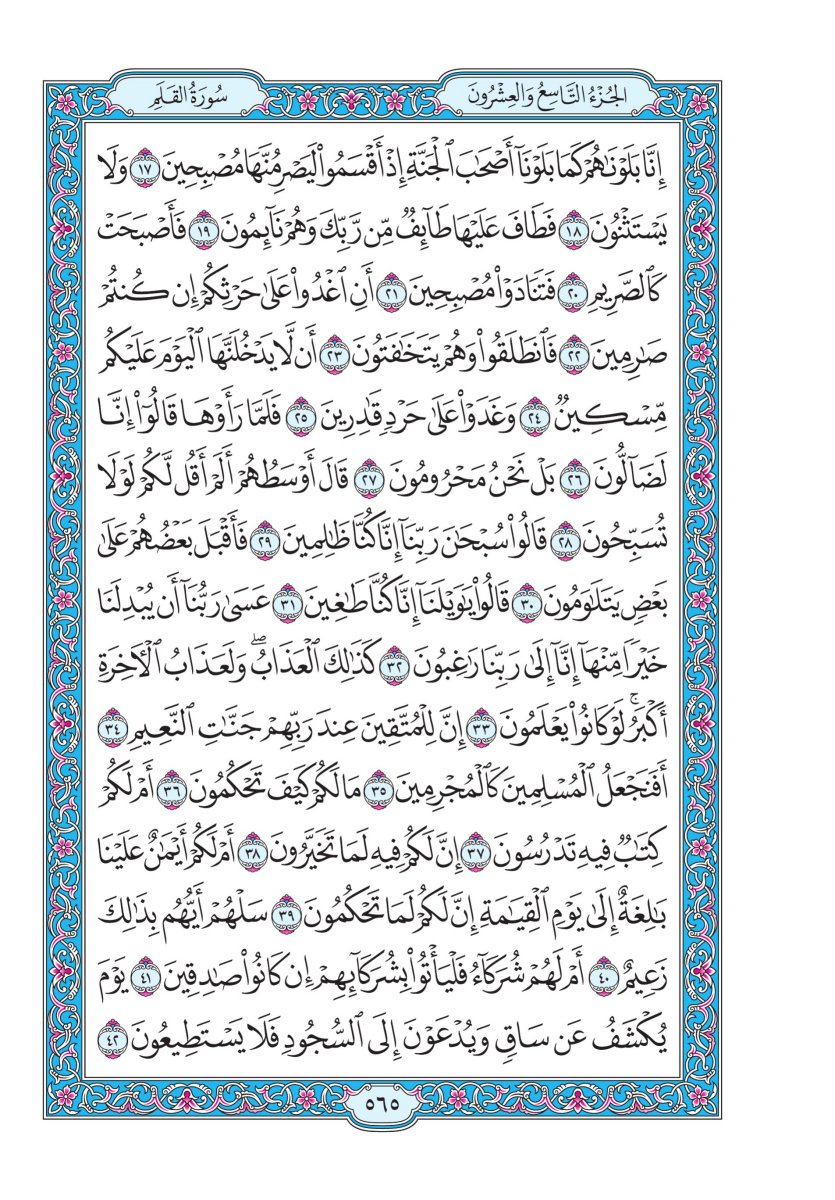 الجُزْءُ التَّاسِعُ وَالعِشْرُونَ
سُورَةُ القَلَمِ
إِنَّا بَلَوْنَٰهُمْ كَمَا بَلَوْنَآ أَصْحَٰبَ ٱلْجَنَّةِ إِذْ أَقْسَمُوا۟ لَيَصْرِمُنَّهَا مُصْبِحِينَ ١٧ وَلَا
يَسْتَثْنُونَ ١٨ فَطَافَ عَلَيْهَا طَآئِفٌ مِّن رَّبِّكَ وَهُمْ نَآئِمُونَ ١٩ فَأَصْبَحَتْ
كَٱلصَّرِيمِ ٢٠ فَتَنَادَوْا۟ مُصْبِحِينَ ٢١ أَنِ ٱغْدُوا۟ عَلَىٰ حَرْثِكُمْ إِن كُنتُمْ
صَٰرِمِينَ ٢٢ فَٱنطَلَقُوا۟ وَهُمْ يَتَخَٰفَتُونَ ٢٣ أَن لَّا يَدْخُلَنَّهَا ٱلْيَوْمَ عَلَيْكُم
مِّسْكِينٌ ٢٤ وَغَدَوْا۟ عَلَىٰ حَرْدٍ قَٰدِرِينَ ٢٥ فَلَمَّا رَأَوْهَا قَالُوٓا۟ إِنَّا
لَضَآلُّونَ ٢٦ بَلْ نَحْنُ مَحْرُومُونَ ٢٧ قَالَ أَوْسَطُهُمْ أَلَمْ أَقُل لَّكُمْ لَوْلَا
تُسَبِّحُونَ ٢٨ قَالُوا۟ سُبْحَٰنَ رَبِّنَآ إِنَّا كُنَّا ظَٰلِمِينَ ٢٩ فَأَقْبَلَ بَعْضُهُمْ عَلَىٰ
بَعْضٍ يَتَلَٰوَمُونَ ٣٠ قَالُوا۟ يَٰوَيْلَنَآ إِنَّا كُنَّا طَٰغِينَ ٣١ عَسَىٰ رَبُّنَآ أَن يُبْدِلَنَا
خَيْرًا مِّنْهَآ إِنَّآ إِلَىٰ رَبِّنَا رَٰغِبُونَ ٣٢ كَذَٰلِكَ ٱلْعَذَابُ ۖ وَلَعَذَابُ ٱلْءَاخِرَةِ
أَكْبَرُ ۚ لَوْ كَانُوا۟ يَعْلَمُونَ ٣٣ إِنَّ لِلْمُتَّقِينَ عِندَ رَبِّهِمْ جَنَّٰتِ ٱلنَّعِيمِ ٣٤
أَفَنَجْعَلُ ٱلْمُسْلِمِينَ كَٱلْمُجْرِمِينَ ٣٥ مَا لَكُمْ كَيْفَ تَحْكُمُونَ ٣٦ أَمْ لَكُمْ
كِتَٰبٌ فِيهِ تَدْرُسُونَ ٣٧ إِنَّ لَكُمْ فِيهِ لَمَا تَخَيَّرُونَ ٣٨ أَمْ لَكُمْ أَيْمَٰنٌ عَلَيْنَا
بَٰلِغَةٌ إِلَىٰ يَوْمِ ٱلْقِيَٰمَةِ إِنَّ لَكُمْ لَمَا تَحْكُمُونَ ٣٩ سَلْهُمْ أَيُّهُم بِذَٰلِكَ
زَعِيمٌ ٤٠ أَمْ لَهُمْ شُرَكَآءُ فَلْيَأْتُوا۟ بِشُرَكَآئِهِمْ إِن كَانُوا۟ صَٰدِقِينَ ٤١ يَوْمَ
يُكْشَفُ عَن سَاقٍ وَيُدْعَوْنَ إِلَى ٱلسُّجُودِ فَلَا يَسْتَطِيعُونَ ٤٢
٥٦٥